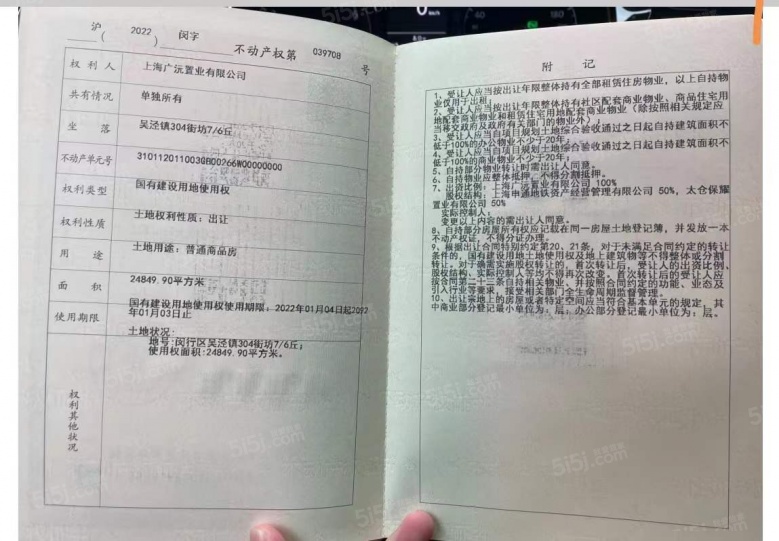 沪(2022)闵字不动产权第039708号
权利人 上海广沅置业有限公司
共有情况 单独所有
坐落 吴泾镇304街坊7/6丘
不动产单元号 310112011003GB00266W00000000
权利类型 国有建设用地使用权
权利性质 土地权利性质：出让
用途 土地用途：普通商品房
面积 24849.90平方米
使用期限 国有建设用地使用权使用期限：2022年01月04日起2092
年01月03日止
权利其他状况
土地状况：
地号：闵行区吴泾镇304街坊7/6丘；
使用权面积：24849.90平方米。
附记
1、受让人应当按出让年限整体持有全部租赁住房物业，以上自持物
业仅用于出租。
2、受让人应当按出让年限整体持有社区配套商业物业、商品住宅用
地配套商业物业和租赁住宅用地配套商业物业（除按照相关规定应
当移交政府及政府有关部门的物业外）；
3、受让人应当自项目规划土地综合验收通过之日起自持建筑面积不
低于100%的办公物业不少于20年；
4、受让人应当自项目规划土地综合验收通过之日起自持建筑面积不
低于100%的商业物业不少于20年；
5、自持部分物业转让需出让人同意。
6、自持物业应整体抵押，不得分割抵押。
7、出资比例：上海广沅置业有限公司 100%
股权结构：上海申通地铁资产经营管理有限公司 50%，太仓保耀
置业有限公司 50%
实际控制人：
变更以上内容的需出让人同意。
8、自持部分房屋所有权应记载在同一房屋土地登记簿，并发放一本
不动产权证，不得分证办理。
9、根据出让合同特别约定第20、21条，对于未满足合同约定的转让
条件的，国有建设用地土地使用权及地上建筑物等不得整体或分割
转让。对于确需实施股权转让的，首次转让后，受让人的出资比例、
股权结构、实际控制人等均不得再次改变。首次转让后的受让人应
按合同第二十三条自持相关物业、并按照合同约定的功能、业态及
引入行业等要求，接受相关部门全生命周期监督管理。
10、出让宗地上的房屋或者特定空间应当符合基本单元的规定，其
中商业部分登记最小单位为：层；办公部分登记最小单位为：层。
5i5j.com
5i5j.com
5i5j.com